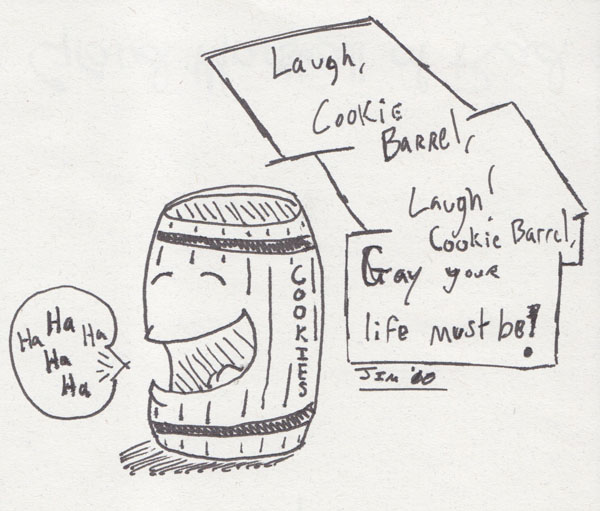 Laugh,
Cookie
Barrel,
Laugh!
Cookie Barrel,
Gay your
life must be!
JIM '00
COOKIES
Ha Ha Ha
Ha
Ha